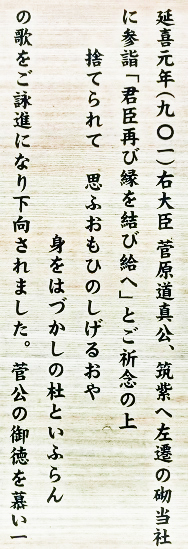 延喜元年(九〇一)右大臣 菅原道真公、筑紫へ左遷の砌当社
に参詣「君臣再び縁を結び給へ」とご祈念の上
捨てられて 思ふおもひのしげるおや
身をはづかしの杜といふらん
の歌をご詠進になり下向されました。菅公の御徳を慕い一